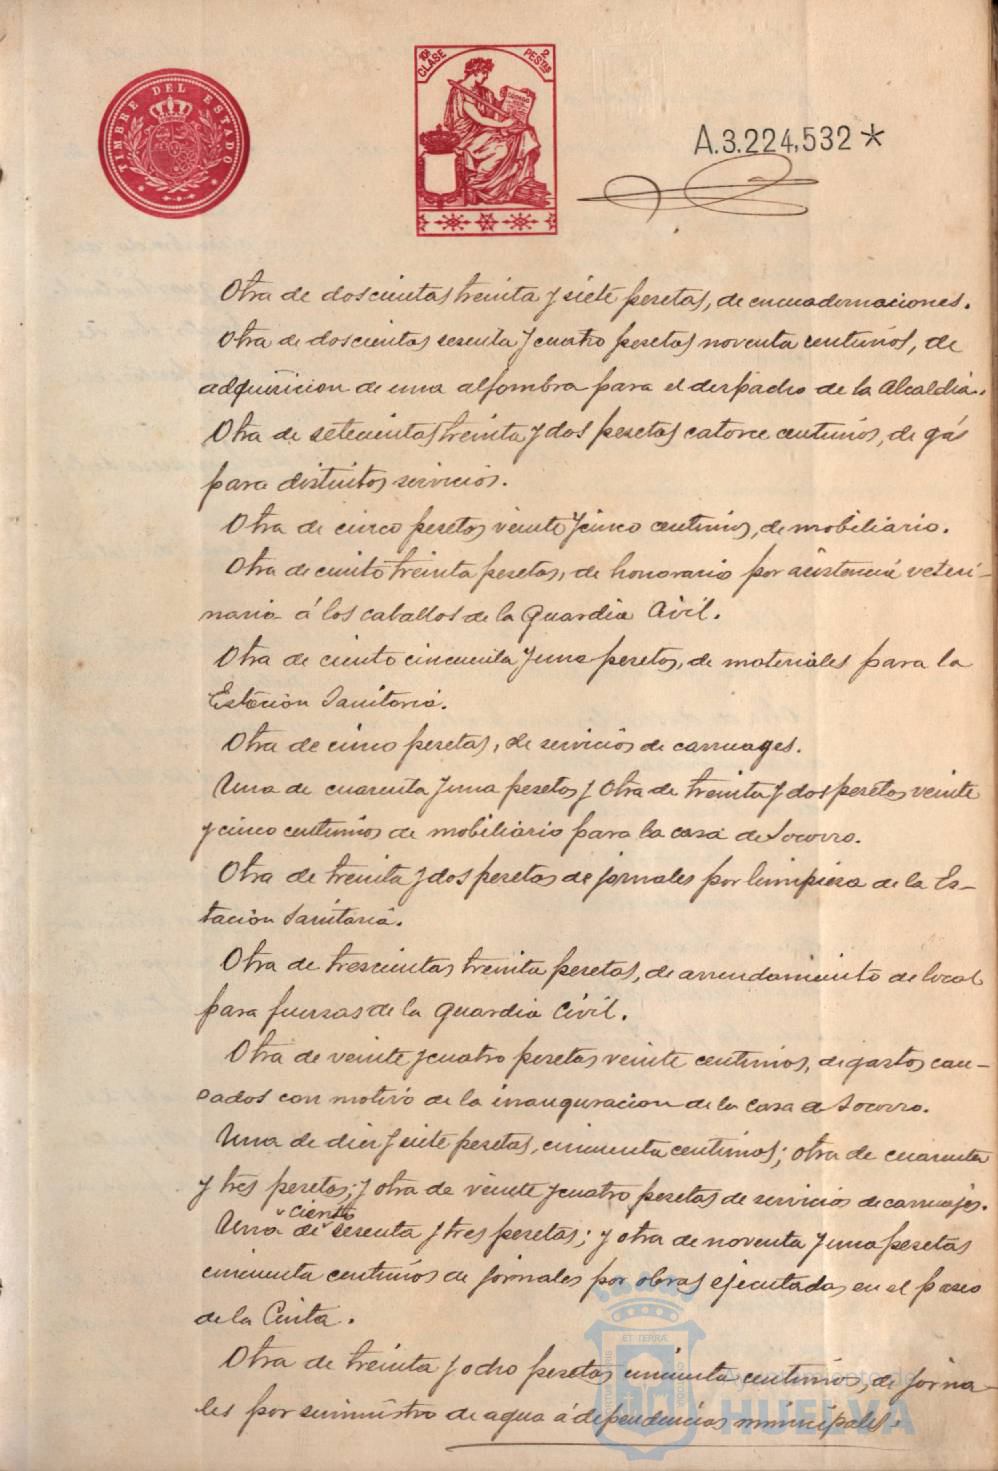 TIMBRE DEL ESTADO
10ª CLASE
2 PESTAS
A.3.224,532*
Otra de doscientas treinta y siete pesetas, de encuadernaciones.
Otra de doscientas sesenta y cuatro pesetas noventa centimos, de
adquisicion de una alfombra para el despacho de la Alcaldia.
Otra de setecientas treinta y dos pesetas catorce centimos, de gás
para distintos servicios.
Otra de cinco pesetas veinte y cinco centimos, de mobiliario.
Otra de ciento treinta pesetas, de honorario por asistencia veteri-
naria á los caballos de la Guardia Civil.
Otra de ciento cincuenta y una pesetas, de materiales para la
Estacion Sanitaria.
Otra de cinco pesetas, de servicios de carruages.
Una de cuarenta y una pesetas y otra de treinta y dos pesetas veinte
y cinco centimos de mobiliario para la casa de Socorro.
Otra de treinta y dos pesetas de jornales por limpieza de la Es-
tacion Sanitaria.
Otra de trescientas treinta pesetas, de arrendamiento de local
para fuerzas de la Guardia Civil.
Otra de veinte y cuatro pesetas veinte centimos, de gastos cau-
sados con motivo de la inauguracion de la Casa de Socorro.
Una de diez y siete pesetas, cincuenta centimos; otra de cuarenta
y tres pesetas; y otra de veinte y cuatro pesetas de servicios de carruajes.
ciento
Una de sesenta y tres pesetas; y otra de noventa y una pesetas
cincuenta centimos de jornales por obras ejecutadas en el paseo
de la Cinta.
Otra de treinta y ocho pesetas cincuenta centimos, de jorna-
les por suministro de agua á dependencias municipales.
ET TERRÆ
Ayuntamiento de
HUELVA